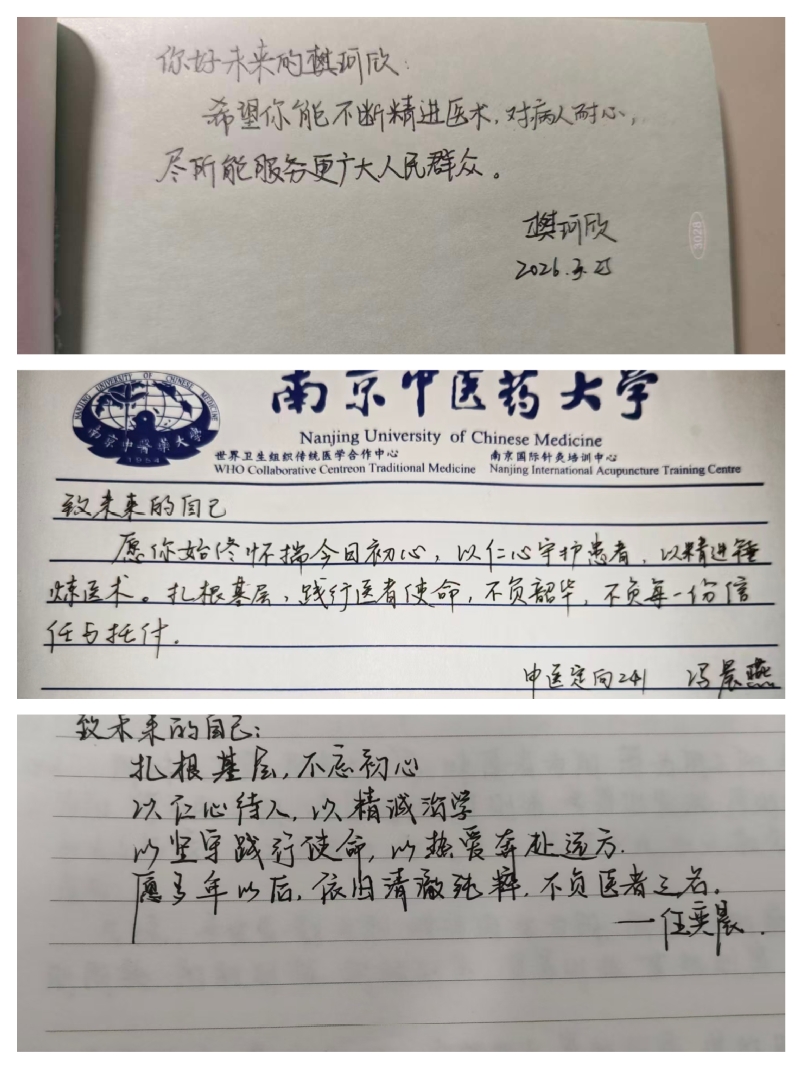 你好未来的樊珂欣:
希望你能不断精进医术,对病人耐心,
尽所能服务更广大人民群众。
樊珂欣
2026.3.25
3028
NANJING UNIVERSITY OF CHINESE MEDICINE
南京中醫藥大學
1954
南京中医药大学
Nanjing University of Chinese Medicine
世界卫生组织传统医学合作中心 南京国际针灸培训中心
WHO Collaborative Centreon Traditional Medicine Nanjing International Acupuncture Training Centre
致未来的自己
愿你始终怀揣今日初心,以仁心守护患者,以精进锤
炼医术。扎根基层,践行医者使命,不负韶华,不负每一份信
任与托付.
中医定向241 冯晨燕
致未来的自己:
扎根基层,不忘初心
以仁心待人,以精诚治学
以坚守践行使命,以热爱奔赴远方.
愿多年以后,依旧清澈纯粹,不负医者之名。
——任奕晨.